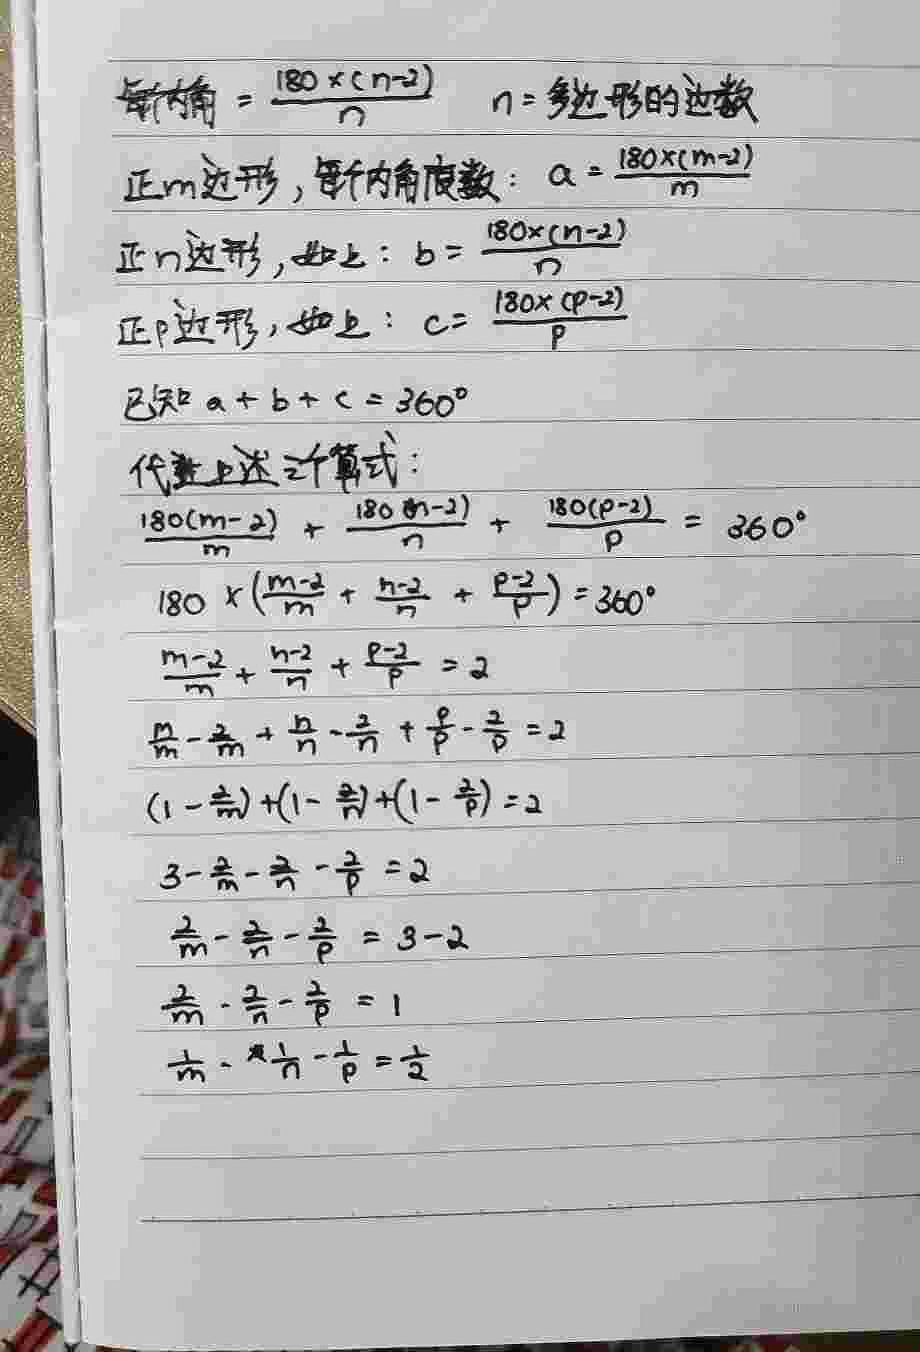 每个内角 = 180×(n-2)/n n = 多边形的边数
正m边形，每个内角度数： a = 180×(m-2)/m
正n边形，如上： b = 180×(n-2)/n
正p边形，如上： c = 180×(p-2)/p
已知 a + b + c = 360°
代入上述三个算式：
180(m-2)/m + 180(n-2)/n + 180(p-2)/p = 360°
180 × (m-2/m + n-2/n + p-2/p) = 360°
m-2/m + n-2/n + p-2/p = 2
m/m - 2/m + n/n - 2/n + p/p - 2/p = 2
(1 - 2/m) + (1 - 2/n) + (1 - 2/p) = 2
3 - 2/m - 2/n - 2/p = 2
2/m - 2/n - 2/p = 3 - 2
2/m - 2/n - 2/p = 1
1/m - 1/n - 1/p = 1/2